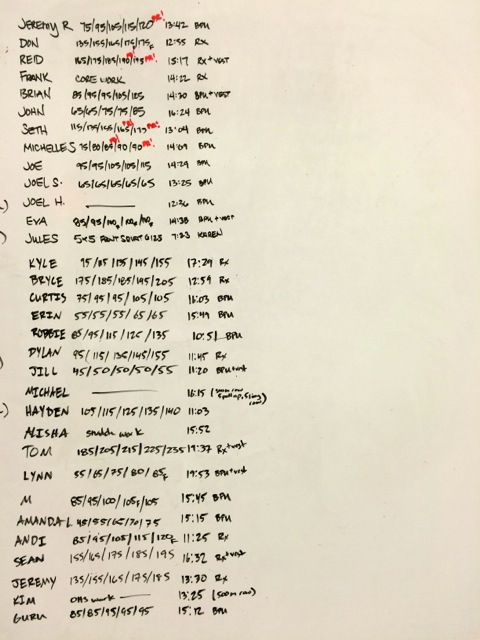 JEREMY R 75/95/105/115/120 PR! 13:42 BPU
DON 135/155/165/175/175F 12:55 RX
REID 165/175/185/190/195 PR! PR! 15:17 RX+VEST
FRANK CORE WORK 14:22 RX
BRIAN 85/95/95/105/125 14:30 BPU+VEST
JOHN 65/65/75/75/85 16:24 BPU
SETH 115/135/155/165/175 PR! PR! 13:04 BPU
MICHELLE S 75/80/85/90/90 PR! PR! 14:09 BPU
JOE 95/95/105/105/115 14:29 BPU
JOEL S. 65/65/65/65/65 13:25 BPU
JOEL H. 12:36 BPU
EVA 85/95/110F/110F/110F 14:38 BPU+VEST
JULES 5x5 FRONT SQUAT @ 125 7:33 KAREN
KYLE 95/115/135/145/155 17:29 RX
BRYCE 175/185/185/195/205 12:59 RX
CURTIS 75/95/95/105/105 16:03 BPU
ERIN 55/55/55/65/65 15:49 BPU
ROBBIE 85/95/115/125/135 10:51 BPU
DYLAN 95/115/135/145/155 11:45 RX
JILL 45/50/50/50/55 11:20 BPU+VEST
MICHAEL 16:15 (500m row
HAYDEN 105/115/125/135/140 11:03
ALISHA snatch work 15:52
TOM 185/205/215/225/235 19:37 RX+VEST
LYNN 55/65/75/80/85F 19:53 BPU+VEST
M 85/95/100/105F/105 15:45 BPU
AMANDA L. 45/55/65/70/75 15:15 BPU
ANDI 85/95/105/115/120F 11:25 RX
SEAN 155/165/175/185/195 16:32 RX+VEST
JEREMY 135/155/165/175/185 13:30 RX
KIM OHS work 13:25 (500m row)
GURU 85/85/95/95/95 15:12 BPU